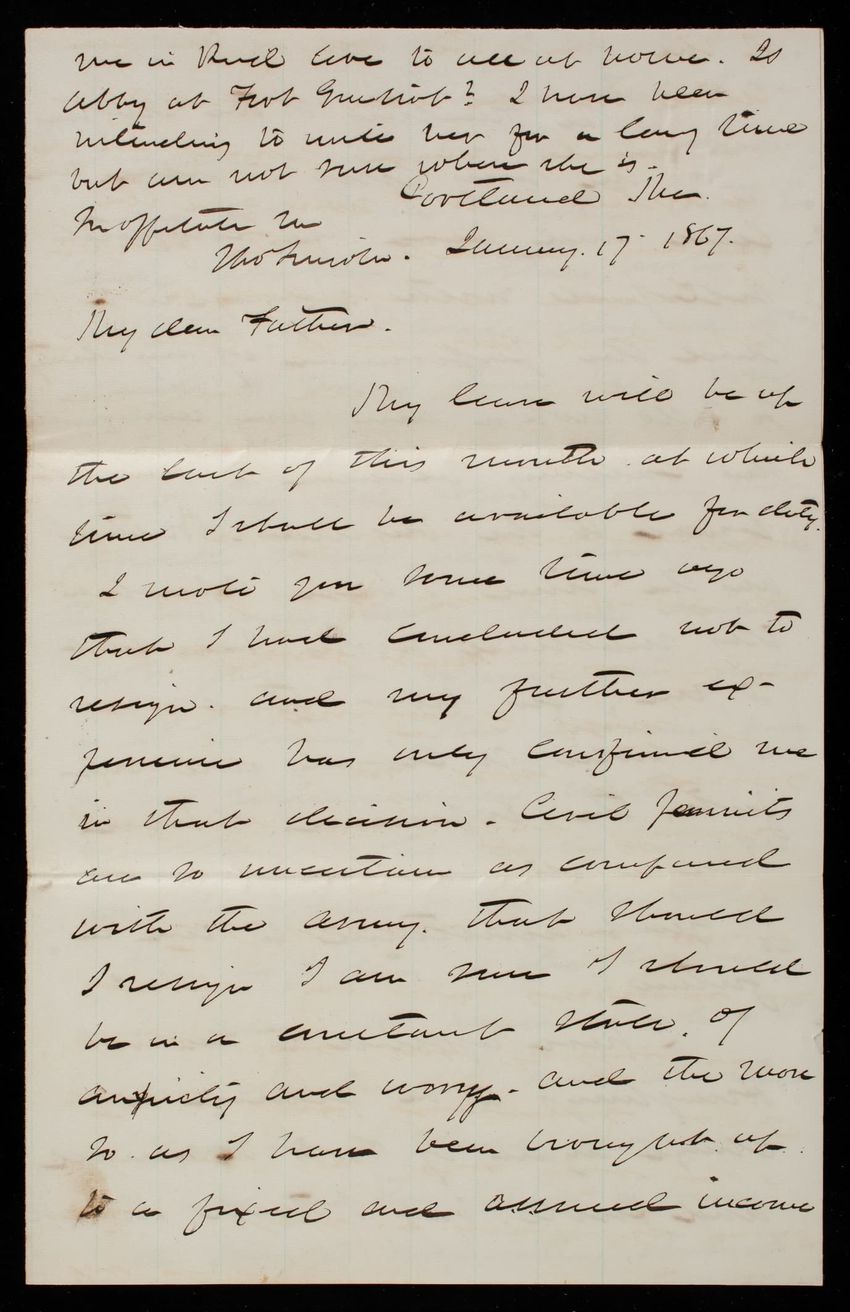 me in kind love to all at home. Is
Abby at Fort Gratiot? I have been
intending to write her for a long time
but am not sure where she is.
Portland Me.
Yr affectate son
Tho Lincoln. January. 17. 1867.
My dear Father.
My leave will be up
the last of this month. at which
time I shall be available for duty.
I wrote you some time ago
that I had concluded not to
resign. and my further ex-
perience has only confirmed me
in that decision. Civil pursuits
are so uncertain as compared
with the army. that should
I resign I am sure I should
be in a constant state. of
anxiety and worry. and the more
so. as I have been brought up.
to a fixed and assured income